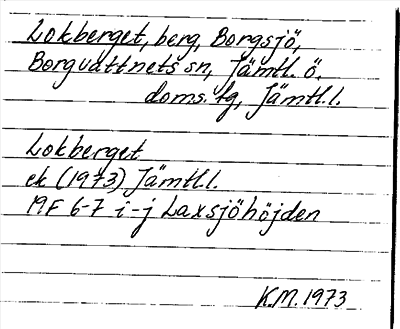 Lokberget, berg, Borgsjö,
Borgvattnets sn, Jämtl. ö.
doms. fg, Jämtl. l.
Lokberget
ek (1973) Jämtl. l.
19F 6-7 i-j Laxsjöhöjden
K.M. 1973